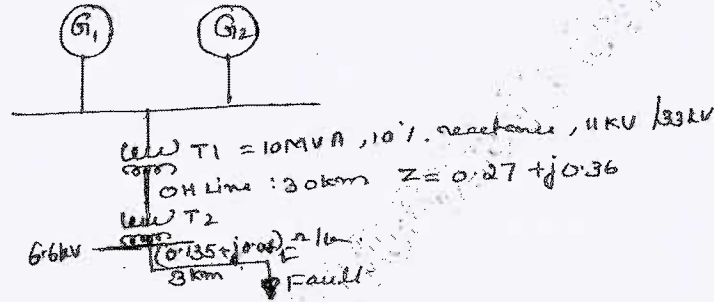 G1 G2
T1 = 10MVA, 10%. reactance, 11KV /33KV
OH Line : 30km Z = 0.27 + j0.36
T2
6.6kV (0.135+j0.08) Ω/km F
3km Fault